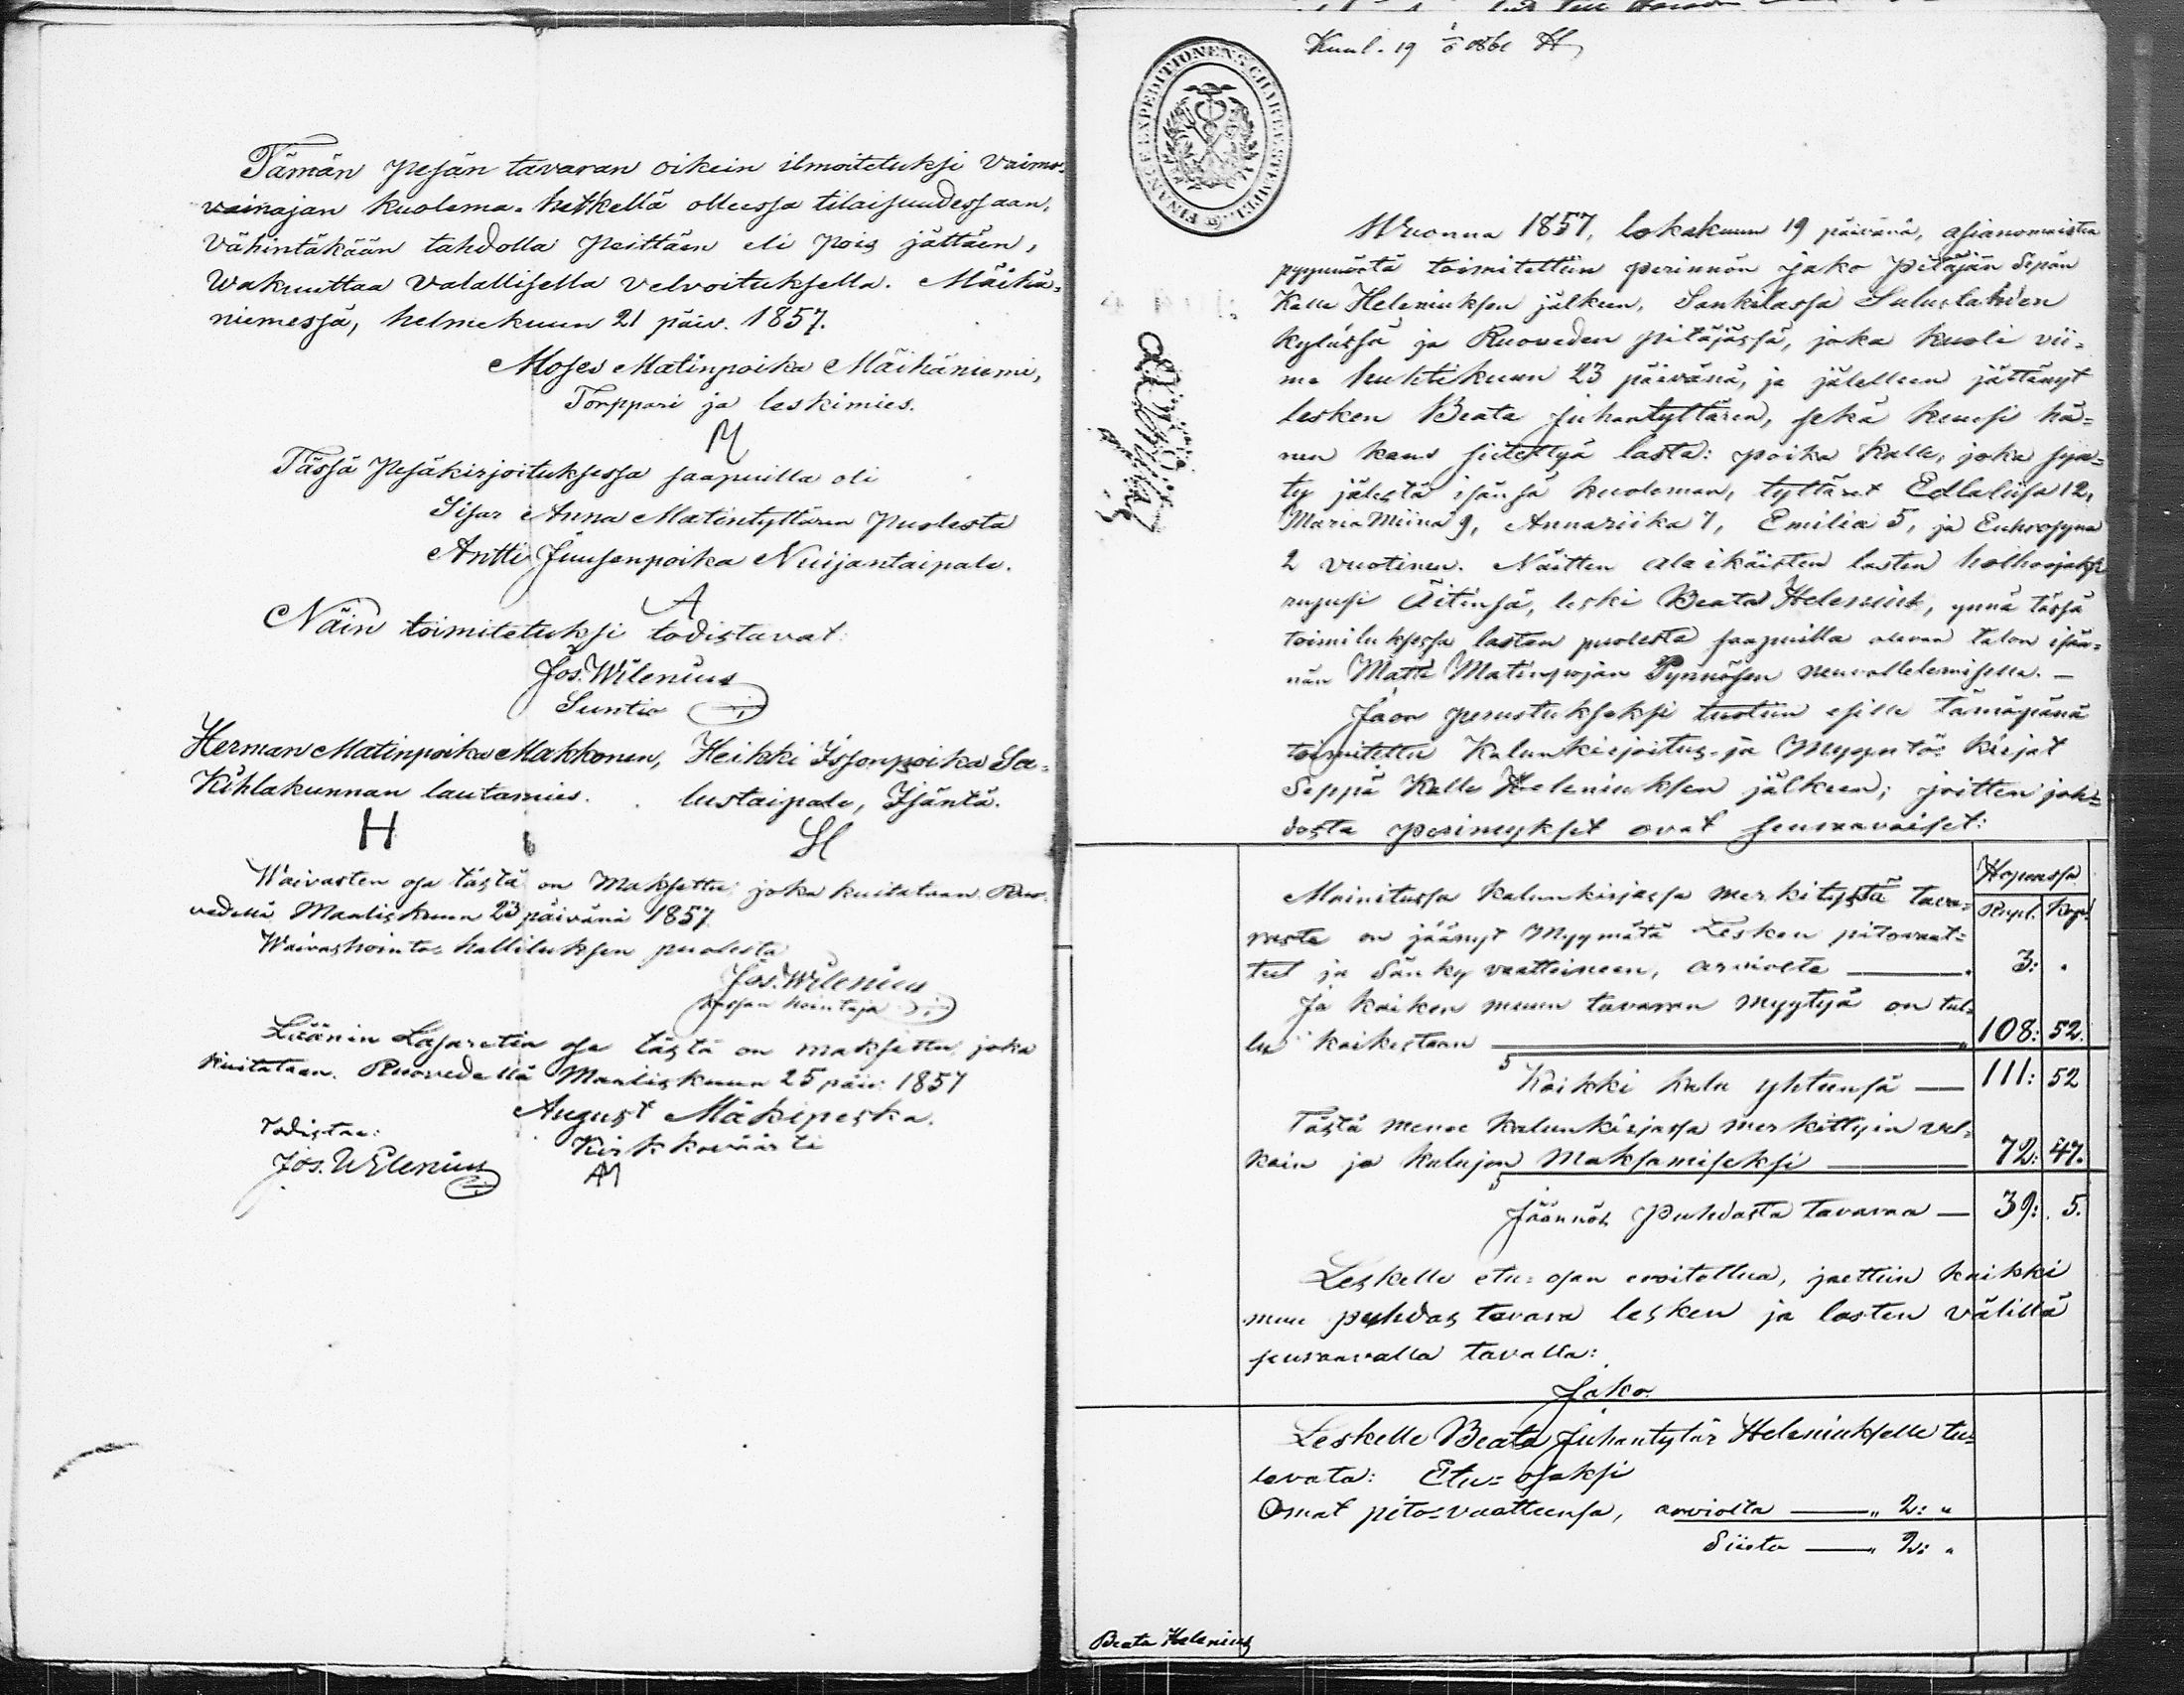 Tämän Pesän tavaran oikein ilmoitetuksi Vaimo-
vainajan kuolema-hetkellä ollessa tilaisuudessaan,
Vähintäkään tahdolla Peittäen eli Pois jättäen,
Wakuuttaa Valallisella velvoituksella. Mäihä-
niemessä, helmekuun 21 päiv. 1857.
Moses Matinpoika Mäihäniemi,
Torppari ja leskimies.
M
Tässä Pesäkirjoituksessa saapuilla oli
Sisar Anna Matintyttären Puolesta
Antti Juusenpoika Nuijantaipale.
A
Näin toimitetuksi todistavat:
Jos. Wilenius
Suntio
Herman Matinpoika Makkonen, Heikki Issonpoika Sa-
Kihlakunnan lautamies. lustaipale, Isäntä.
H
Waivasten osa tästä on Maksettu; joka kuitataan Ruo-
vedellä Maaliskuun 23 päivänä 1857
Waivashointo-hallituksen puolesta
Jos. Wilenius
kassan hointaja
Läänin Lasaretin osa tästä on maksettu, joka
kuitataan. Ruovedellä Maaliskuun 25 päiv. 1857
August Mäkipeska.
Kirkkoväärti
AM
Todistaa:
Jos. Wilenius
Kuul. 19
FINANCE EXPEDITIONENS CHARTÆ STEMPEL
Wuonna 1857, lokakuun 19 päivänä, asianomaisten
pyynnöstä toimitettiin perinnön jako Pitäjän Sepän
Kalle Heleniuksen jälkeen, Sankilassa Sulustahden
kylässä ja Ruoveden pitäjässä, joka kuoli vii-
me huhtikuun 23 päivänä, ja jälelleen jättänyt
lesken Beata Juhantyttären, sekä kuusi hä-
nen kans siitettyä lasta: poika Kalle, joka syn-
ty jälestä isänsä kuoleman, tyttäret Edlaliisa 12,
Maria Miina 9, Annariika 7, Emilia 5, ja Euhrosyna
2 vuotinen. Näitten alaikäisten lasten holhoojaksi
rupesi Äitinsä, leski Beata Helenius, ynnä tässä
toimituksessa lasten puolesta saapuilla olevan talon isän-
nän Matti Matinpojan Pynnösen neuvottelemisella. —
Jaon perustukseksi tuotiin esille tänäpänä
toimitettu Kalunkirjoitus- ja Myyntö-kirjat
Seppä Kalle Heleniuksen jälkeen; joitten joh-
dosta perimykset ovat seuraavaiset:
Hopeassa
Rupl. Kop.
Mainitussa kalunkirjassa merkitystä tava-
rasta on jäänyt Myymätä Lesken pitovaat-
teet ja Sänky vaatteineen, arviolta — 3: "
Ja kaiken muun tavaran myytyä on tul-
lu kaikestaan — 108: 52.
Kaikki kalu yhteensä — 111: 52
Tästä menee kalunkirjassa merkittyin vel-
kain ja kulujen Maksamiseksi — 72: 47.
Jäännös Puhdasta tavaraa — 39: 5.
Leskelle etu-osan eroitettua, jaettiin kaikki
muu puhdas tavara lesken ja lasten välillä
seuraavalla tavalla:
Jako
Leskelle Beata Juhantytär Heleniukselle tu-
levata: Etu-osaksi
Omat pito-vaatteensa, arviolta — " 2: "
Siirto — " 2: "
Beata Helenius